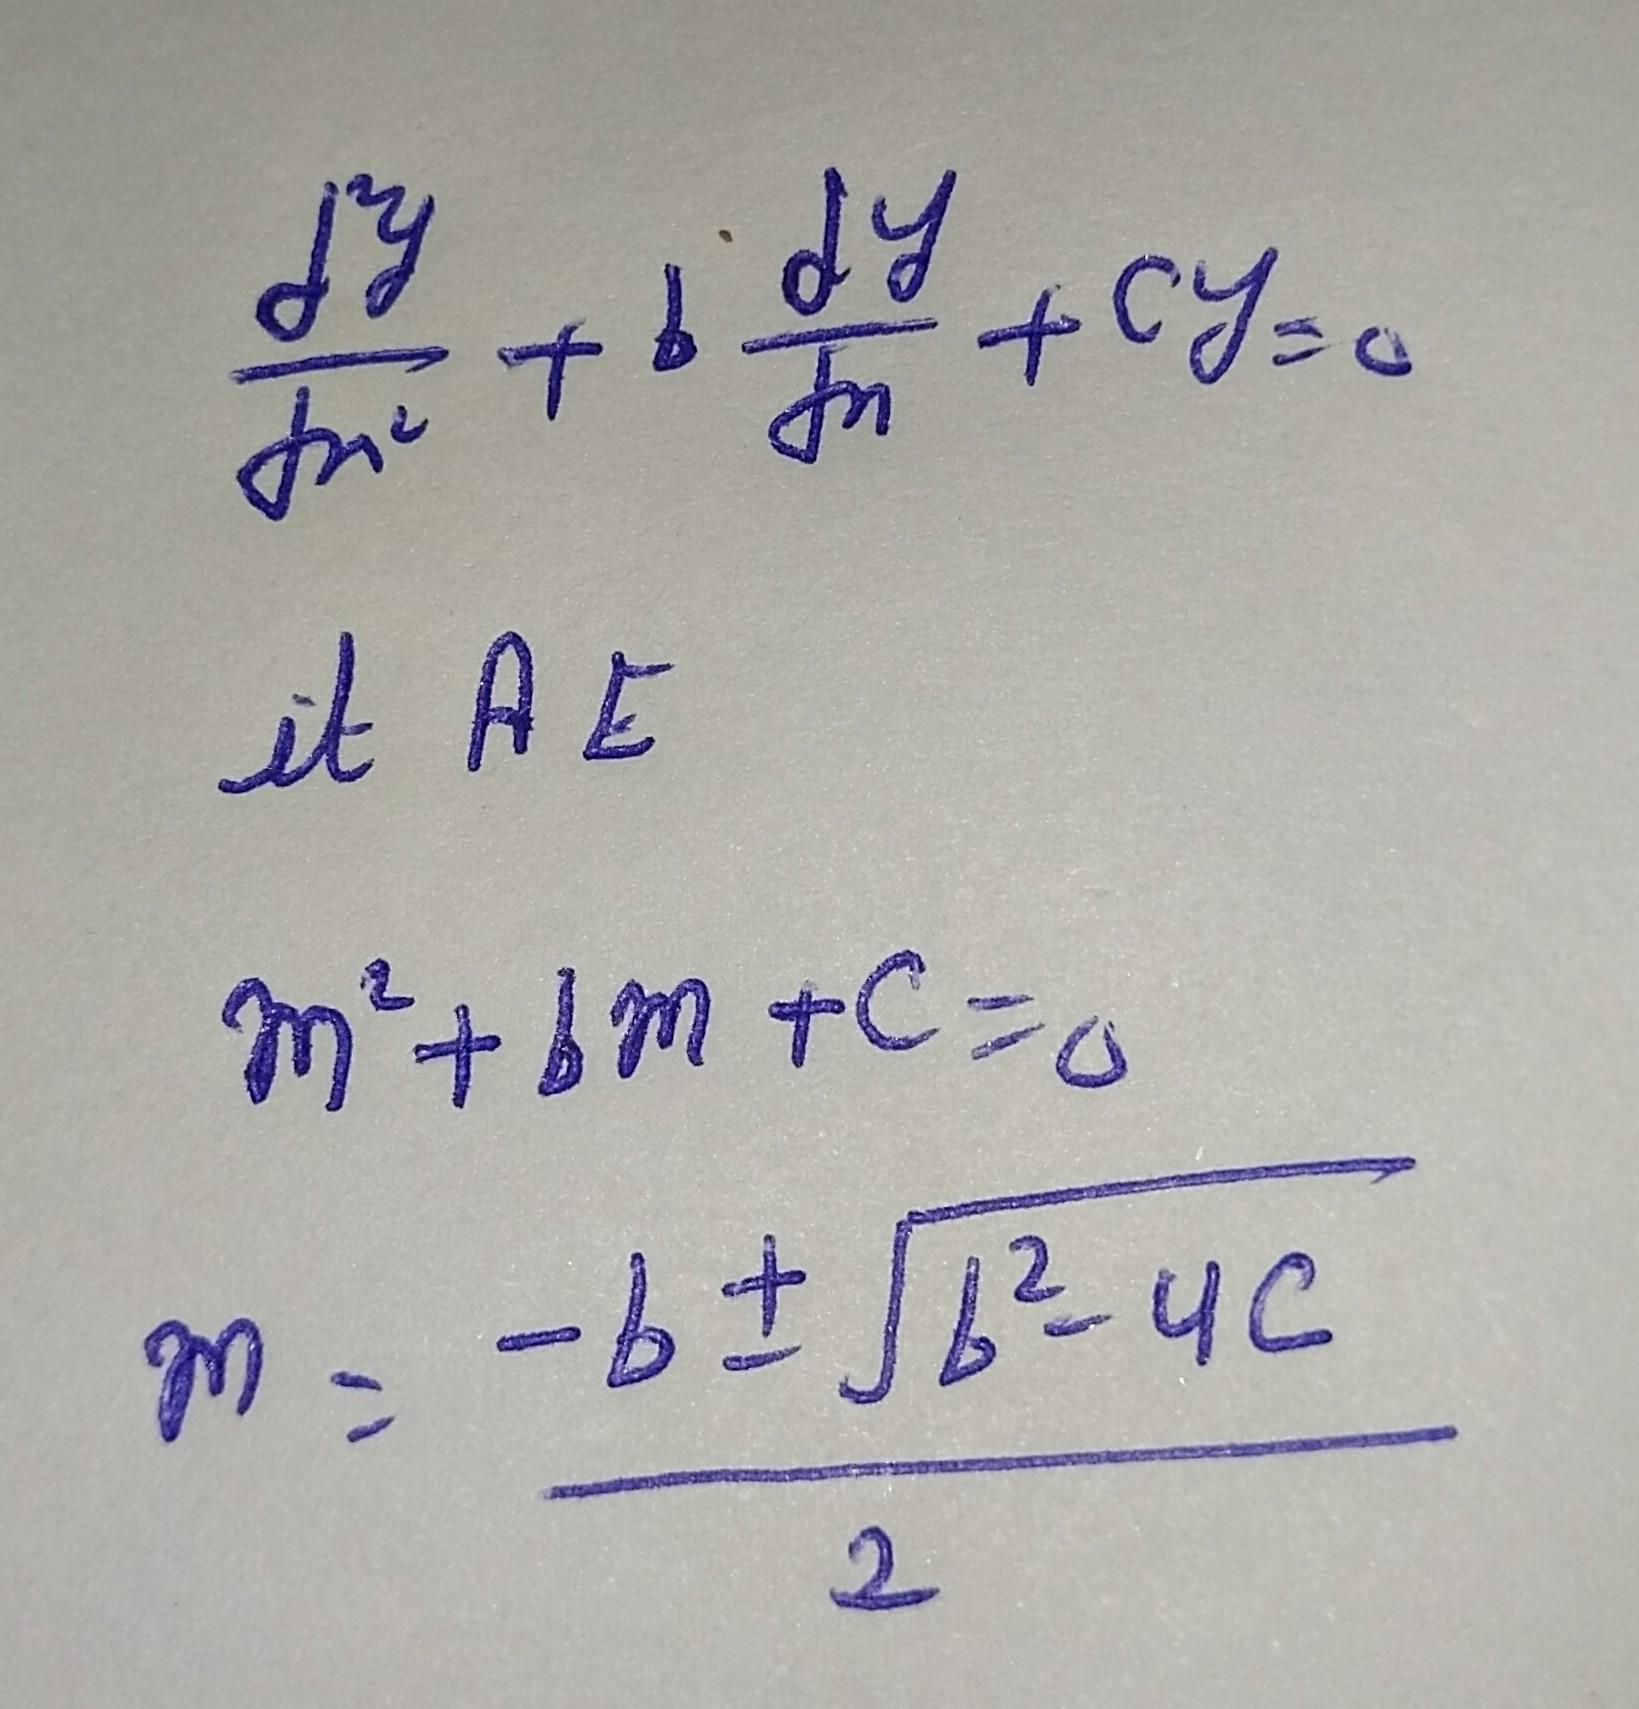 d²y/dx² + b dy/dx + cy = 0
it A E
m² + bm + c = 0
m = -b ± √(b² - 4c) / 2